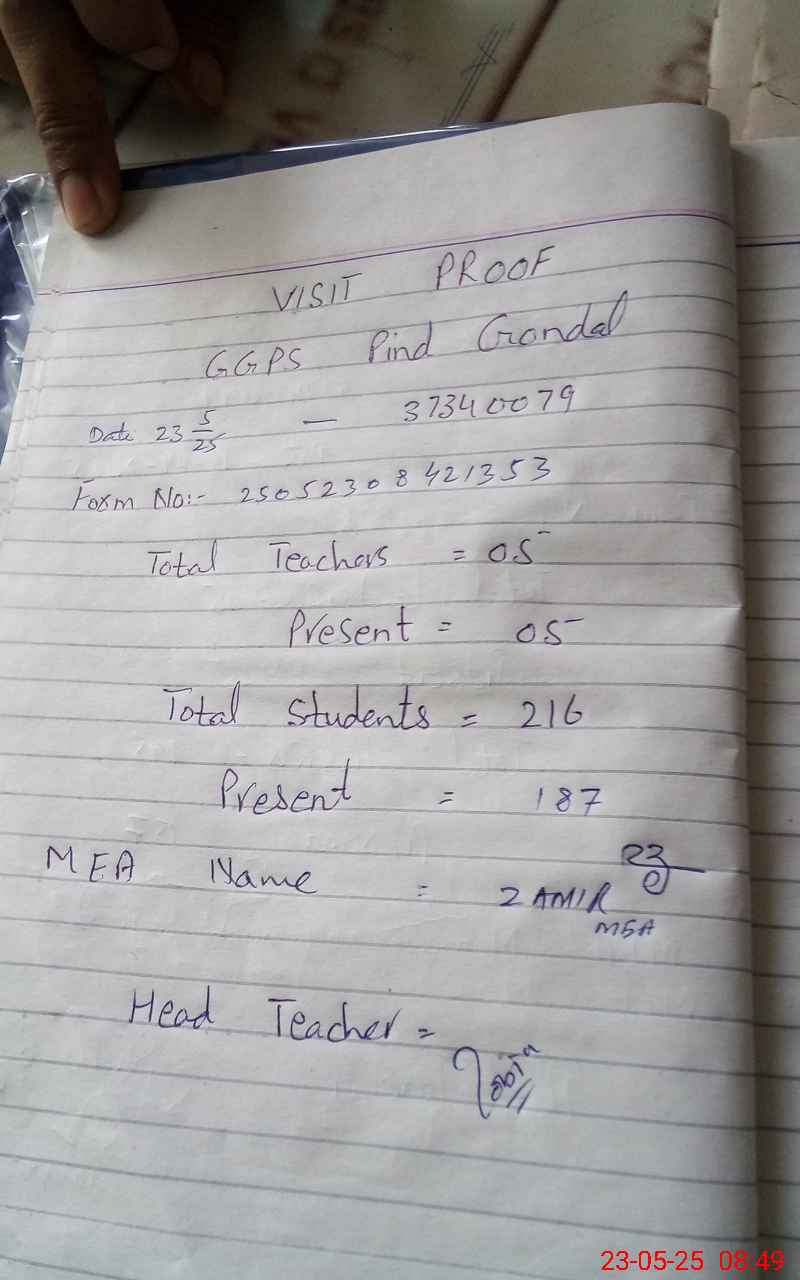 VISIT PROOF
GGPS Pind Gondal
Date 23 5/25 — 37340079
Form No:- 25052308421353
Total Teachers = 05
Present = 05
Total Students = 216
Present = 187
MEA Name = ZAMIR
MEA
Head Teacher =
23-05-25 08:49